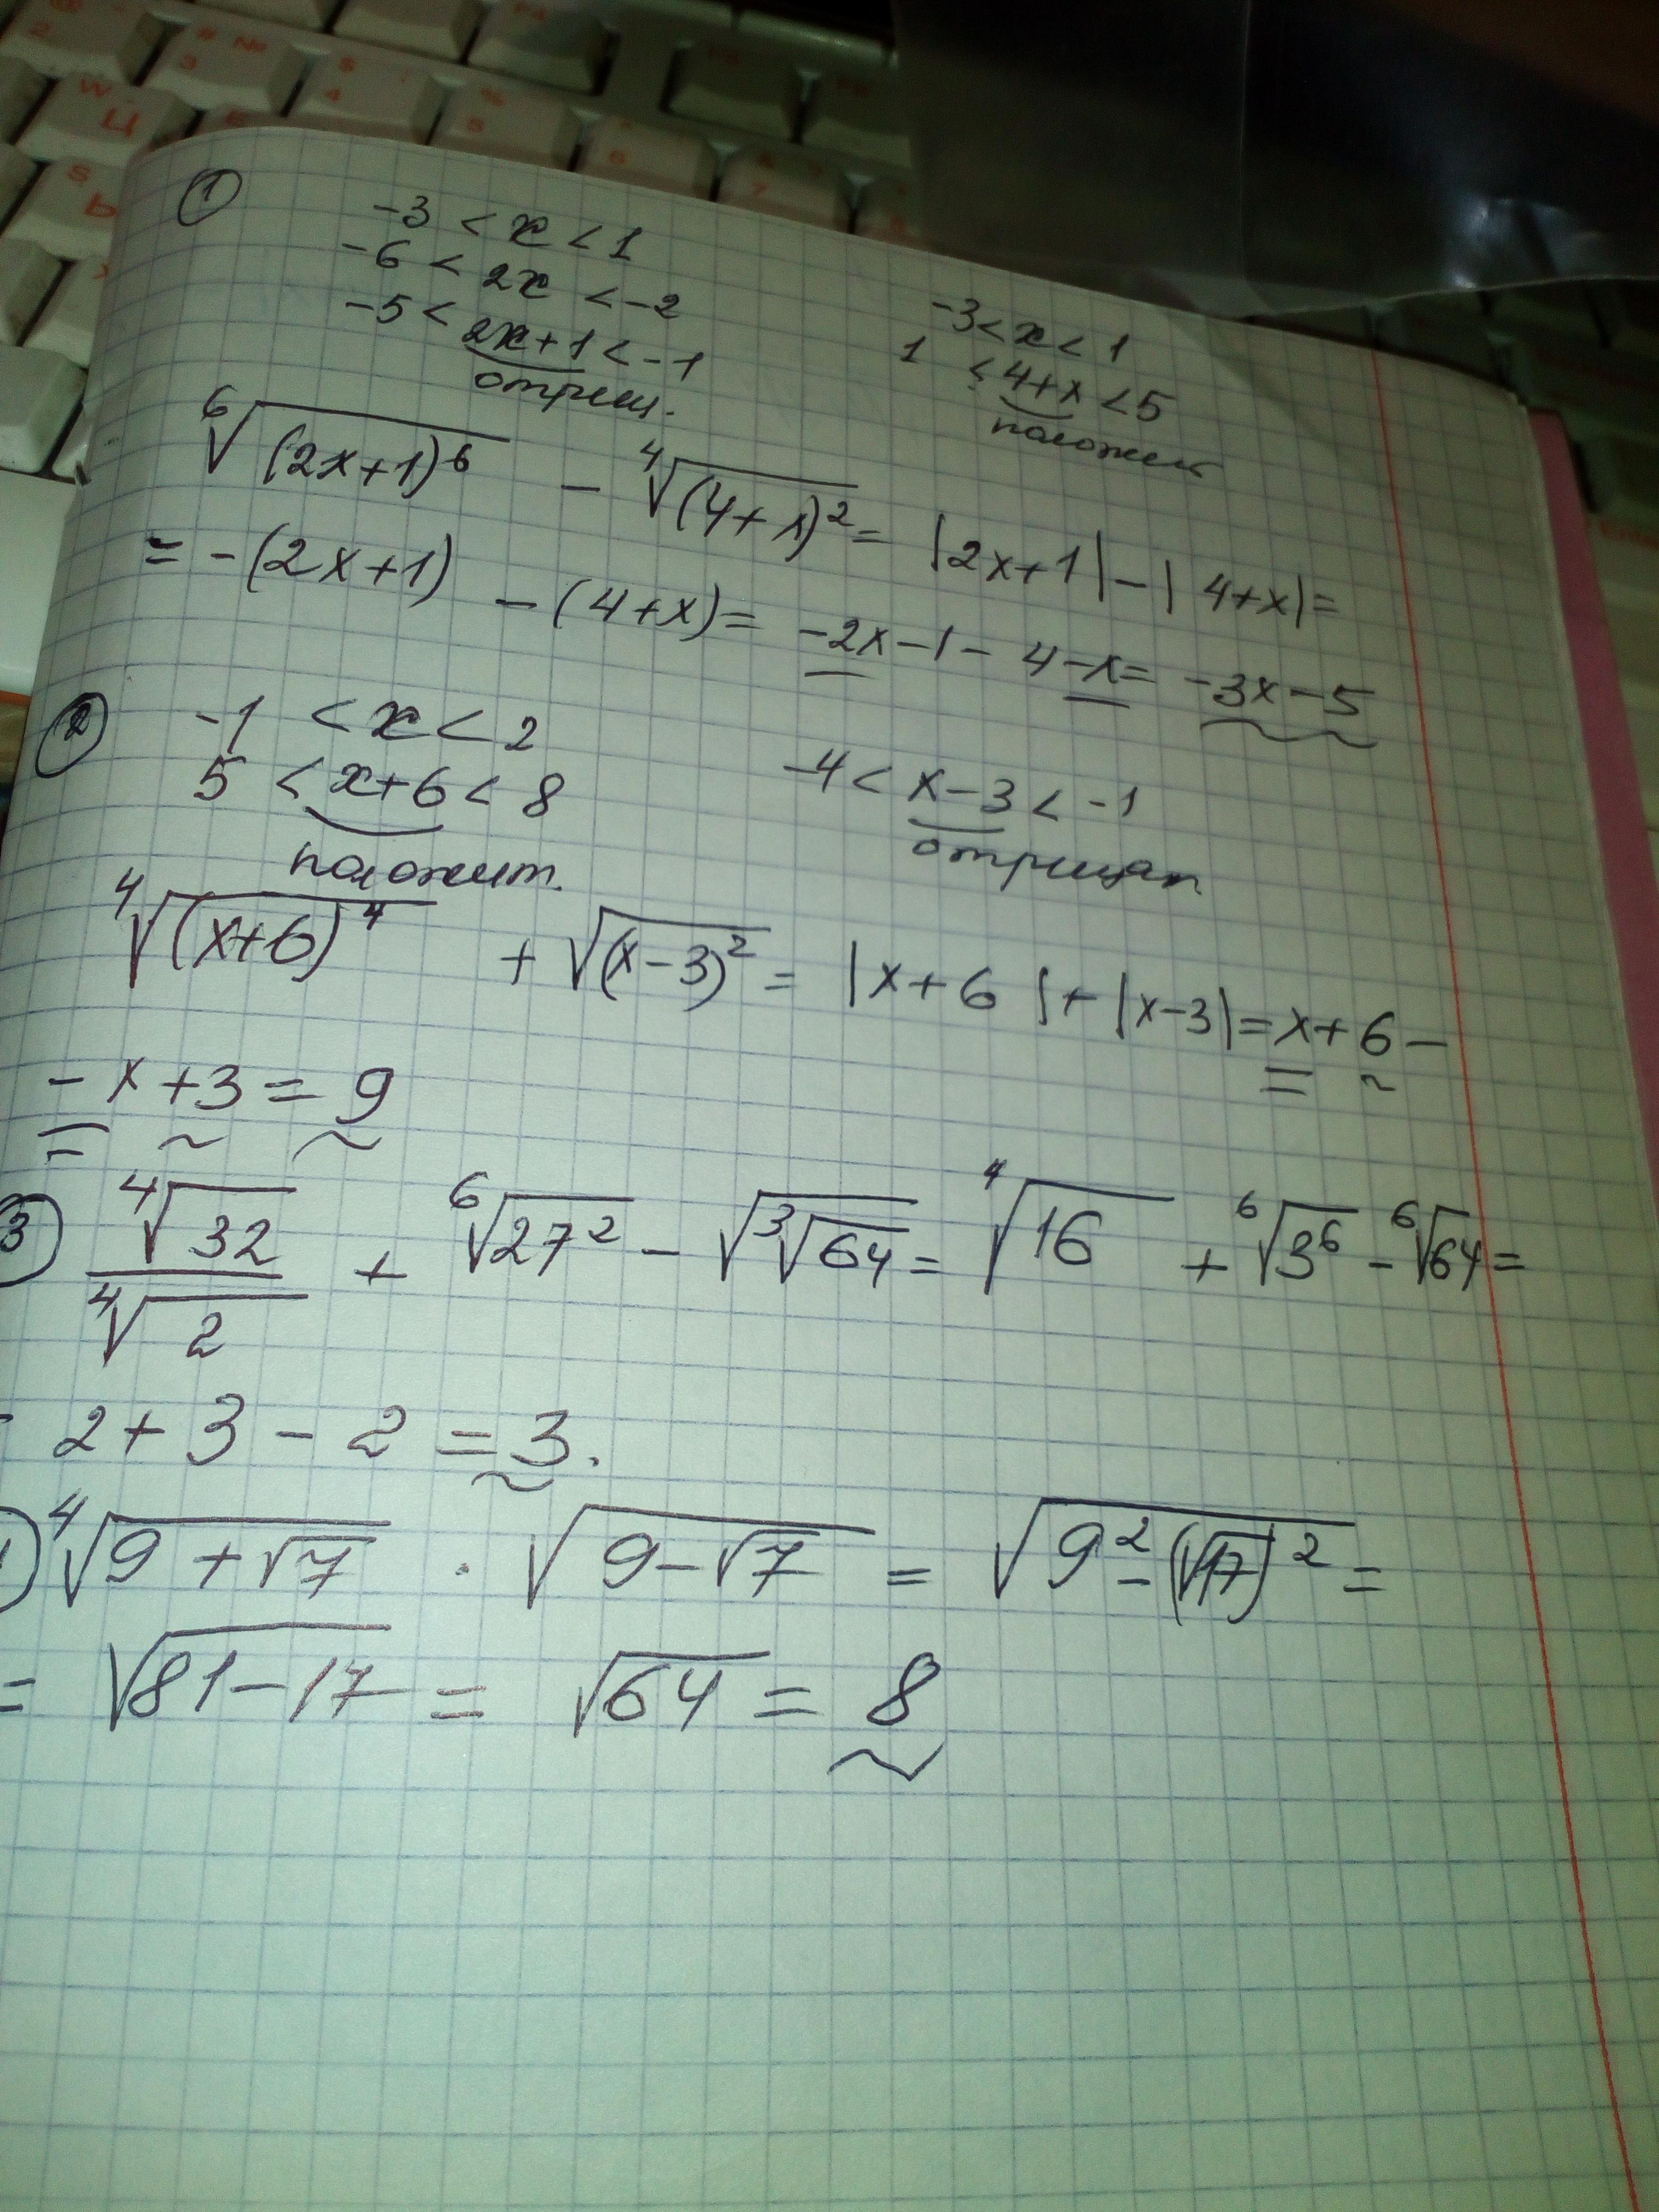 ①
-3 < x < 1
-6 < 2x < -2
-5 < 2x+1 < -1
отриц.
-3 < x < 1
1 < 4+x < 5
положит
⁶√(2x+1)⁶ - ⁴√(4+x)² = |2x+1| - |4+x| =
= -(2x+1) - (4+x) = -2x-1-4-x = -3x-5
②
-1 < x < 2
5 < x+6 < 8
положит.
-4 < x-3 < -1
отрицат
⁴√(x+6)⁴ + √(x-3)² = |x+6| + |x-3| = x+6-
-x+3 = 9
③ ⁴√32 / ⁴√2 + ⁶√27² - √³√64 = ⁴√16 + ⁶√3⁶ - ⁶√64 =
= 2+3-2 = 3.
⁴√9+√7 · √9-√7 = √9²-(√17)² =
= √81-17 = √64 = 8